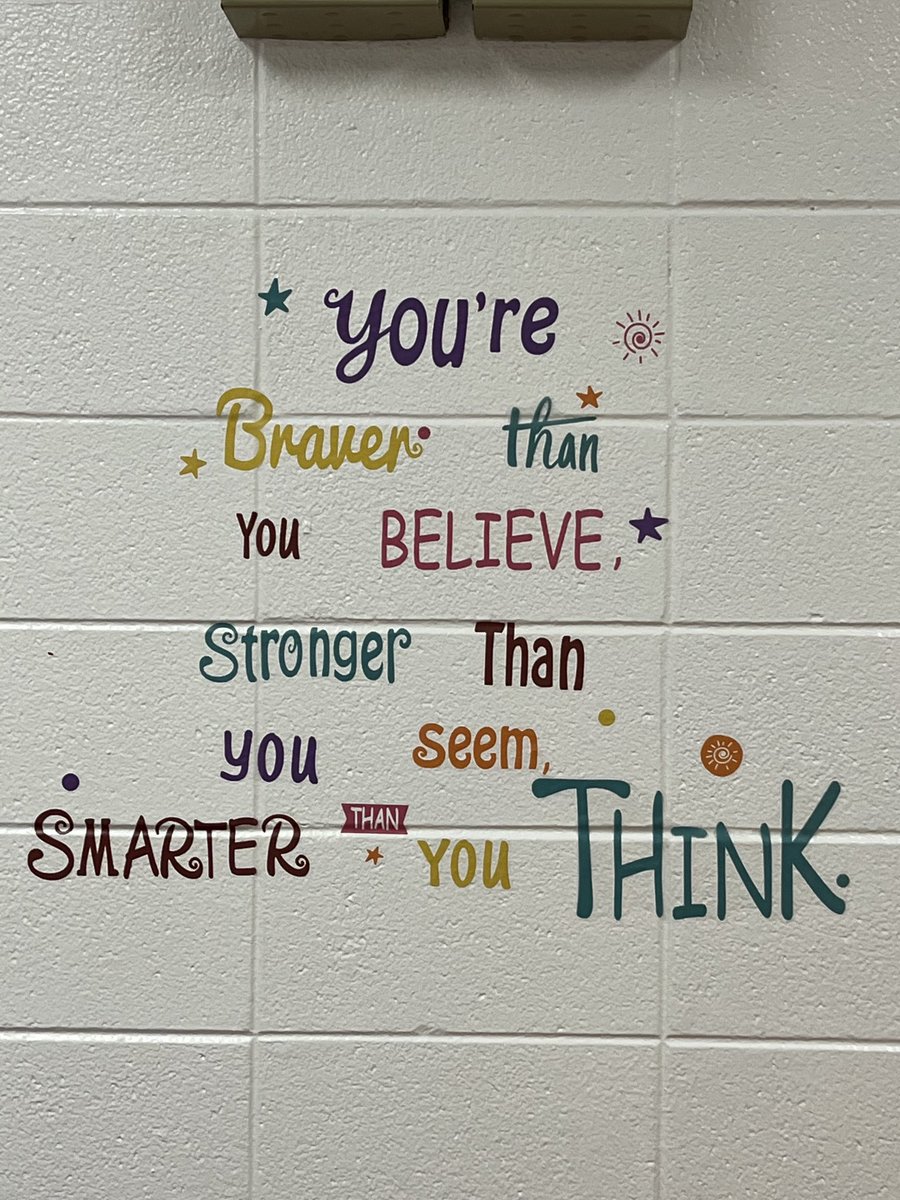 You're
Braver than
You BELIEVE,
Stronger Than
you seem,
SMARTER THAN YOU THINK.